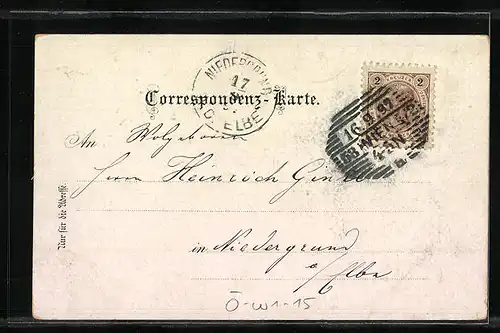 NIEDERGRUND
17
A.D. ELBE
2 KREUZER 2
16.9.97
WIEN
Correspondenz-Karte.
An Wolgeboren
Herrn Heinrich
in Niedergrund
a/Elbe
Nur für die Adresse.
Ö-W1-15